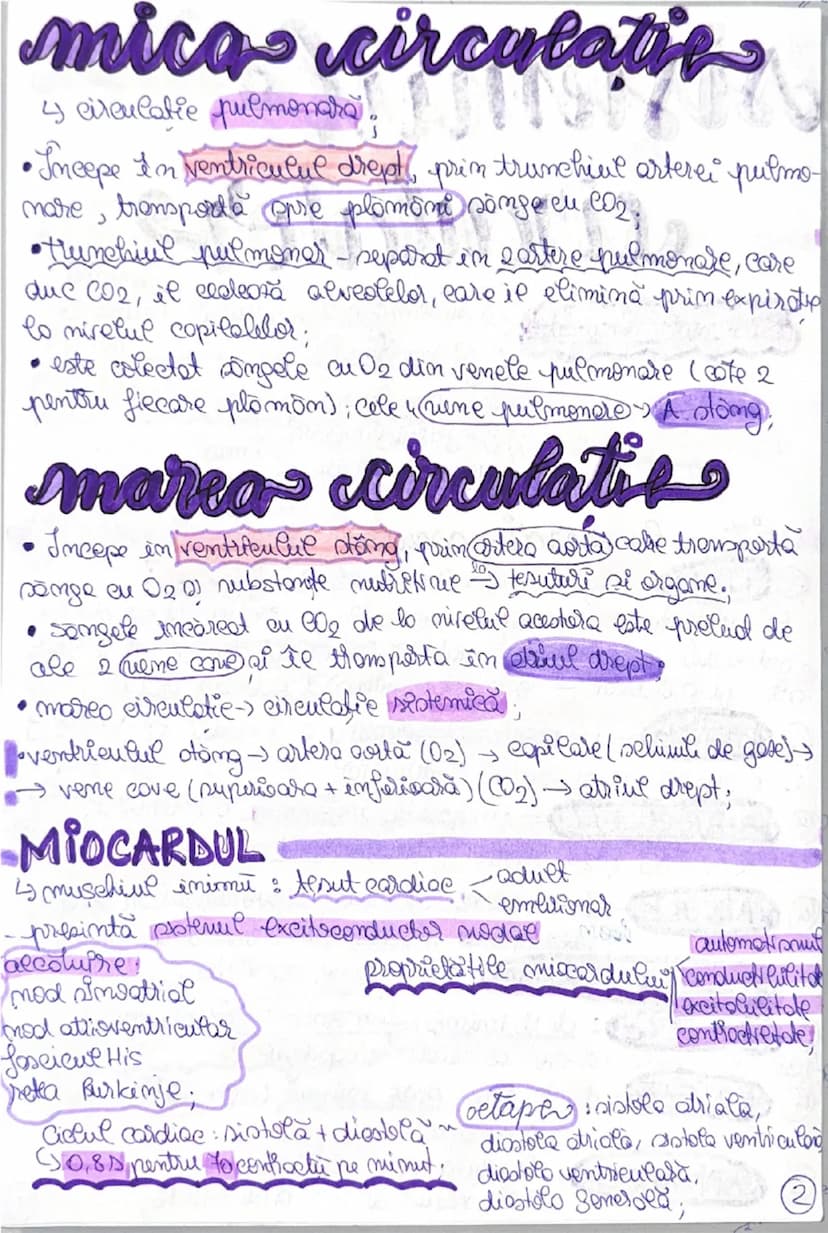 mica circulație
↳ circulație pulmonară;
• Începe în ventriculul drept, prin trunchiul arterei pulmo-
nare, transportă spre plămâni sânge cu CO2;
• trunchiul pulmonar - separat în 2 artere pulmonare, care
duc CO2, îl cedează alveolelor, care îl elimină prin expirație
la nivelul capilarelor;
• este colectat sângele cu O2 din venele pulmonare (câte 2
pentru fiecare plămân); cele 4 vene pulmonare → A. stâng;
marea circulație
• Începe în ventriculul stâng, prin artera aortă care transportă
sânge cu O2 și substanțe nutritive la → țesuturi și organe.
• sângele încărcat cu CO2 de la nivelul acestora este preluat de
cele 2 vene cave și îl transportă în atriul drept;
• marea circulație → circulație sistemică;
• ventriculul stâng → artera aortă (O2) → capilare (schimb de gaze) →
→ vene cave (superioară + inferioară) (CO2) → atriul drept.
- MIOCARDUL
↳ mușchiul inimii: țesut cardiac
adult
embrionar
- prezintă sistemul excitoconductor nodal
alcătuire:
nod sinoatrial
nod atrioventricular
fascicul His
rețea Purkinje;
proprietățile miocardului
automatismul
conductibilitate
excitabilitate
contractilitate;
Ciclul cardiac: sistolă + diastolă ~
↳ 0,8s pentru 70 contracții pe minut;
etape: sistola atrială,
diastola atrială, sistola ventriculară
diastola ventriculară,
diastola generală;
2